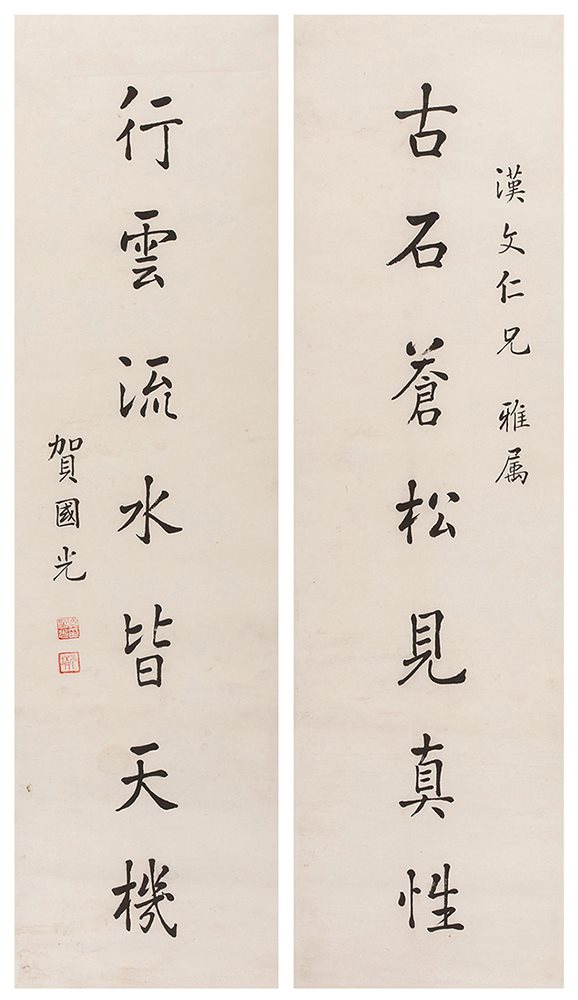 漢文仁兄 雅属
古石蒼松見真性
行雲流水皆天機
賀國光